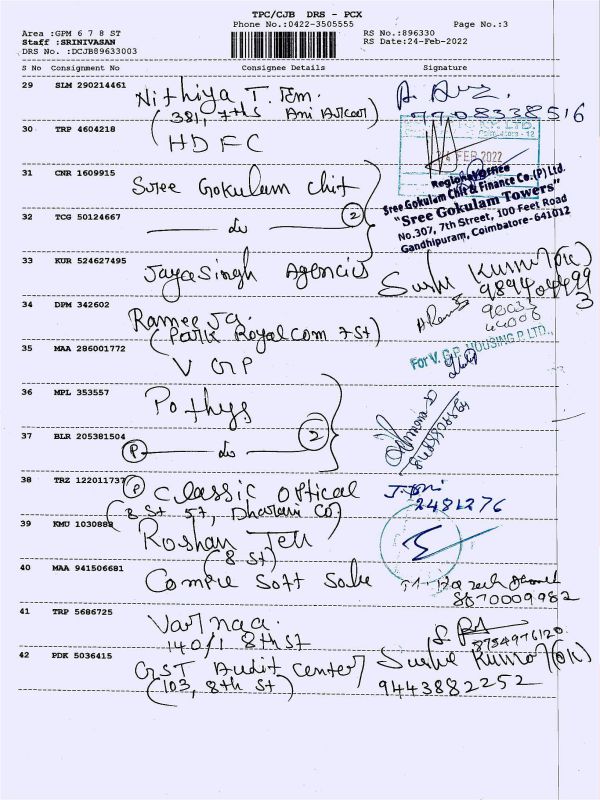 TPC/CJB DRS - PCX
Phone No.:0422-3505555 Page No.:3
Area :GPM 6 7 8 ST RS No.:896330
Staff :SRINIVASAN RS Date:24-Feb-2022
DRS No. :DCJB89633003
S No Consignment No Consignee Details Signature
29 SLM 290214461 Nithiya T.
(381, 7th S
7708338516
30 TRP 4604218 HDFC
FEB 2022
31 CNR 1609915 Sree Gokulam Chit
Regional Office
Sree Gokulam Chit & Finance Co.(P) Ltd.
"Sree Gokulam Towers"
No.307, 7th Street, 100 Feet Road
Gandhipuram, Coimbatore-641012
32 TCG 50124667 — do — 2
33 KUR 524627495 Jayasingh Agencies
34 DPM 342602 Rameeja.
(Park Royal com 7 St)
35 MAA 286001772 V G P
For V.G.P. HOUSING P LTD.,
36 MPL 353557 Pothys
37 BLR 205381504 P — do — 2
38 TRZ 122011737 P Classic Optical
(8 St 57, Dharani Co)
2481276
39 KMU 1030888 Roshan Tell
(8 St)
40 MAA 941506681 Compu Soft Sale
8870009982
41 TRP 5686725 Varnaa.
140/1 8th St
8754976120
42 PDK 5036415 GST Audit Center
(103, 8th St)
9443882252